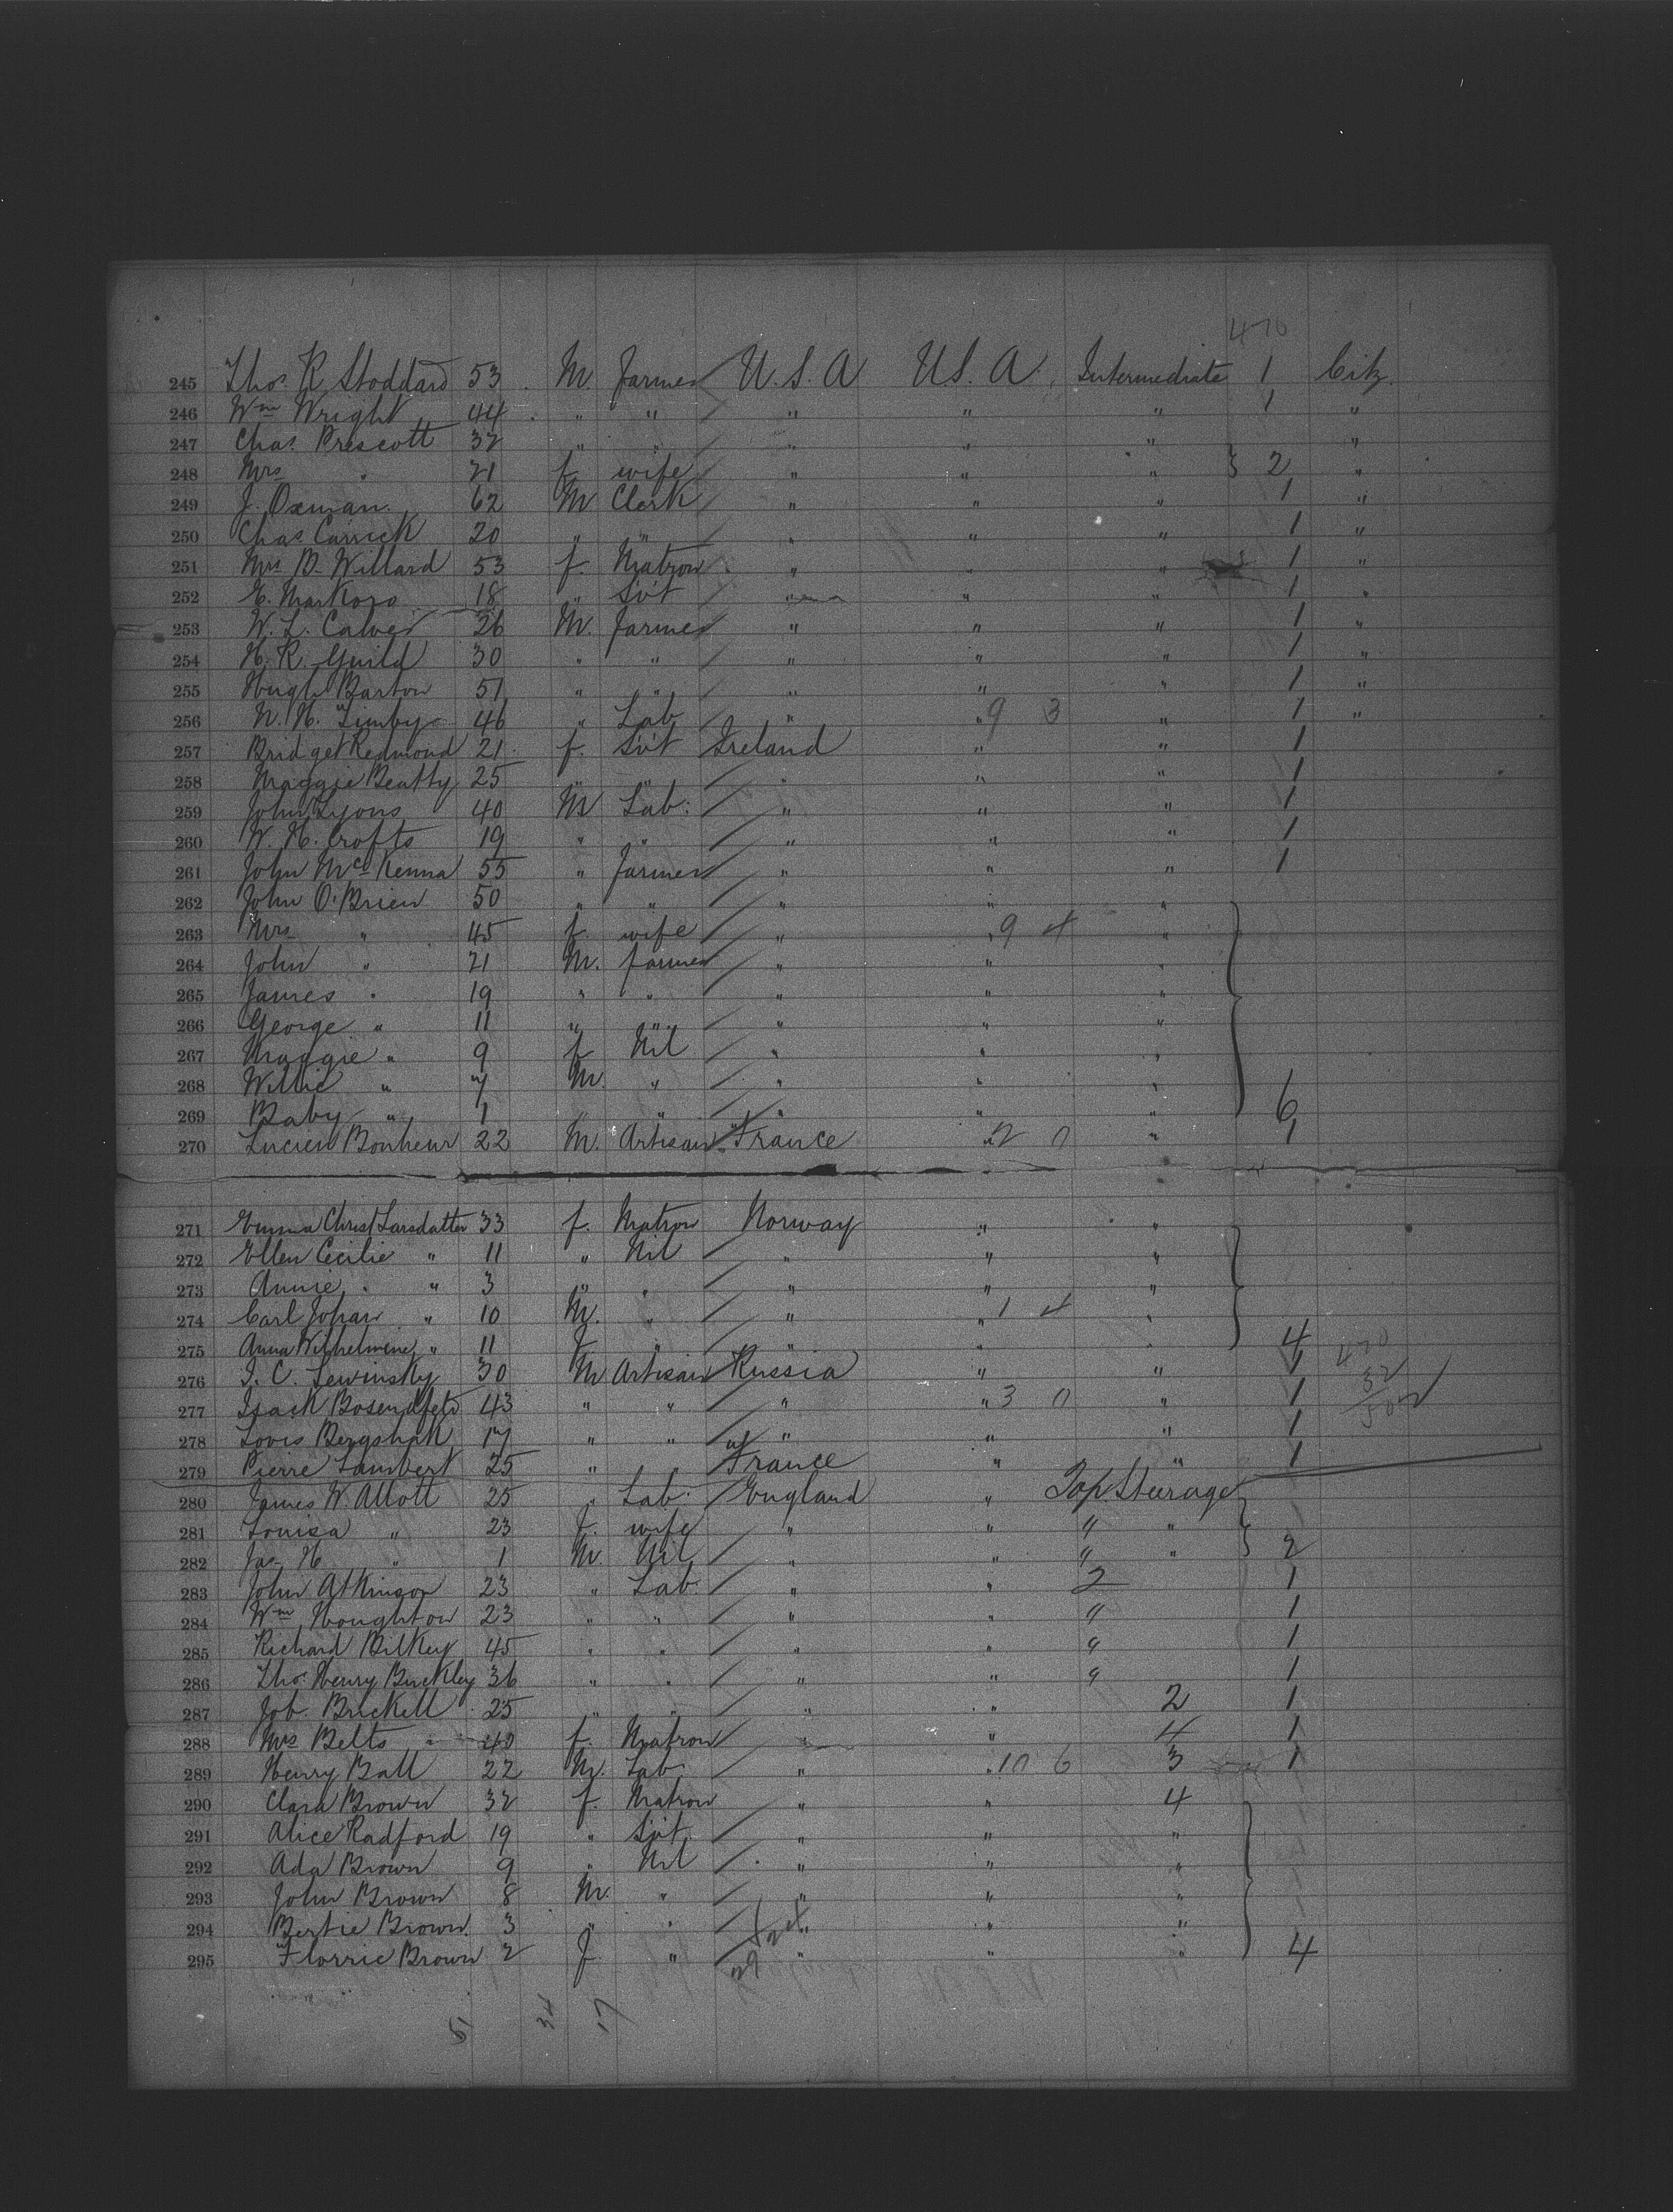 470
245 Thos. R. Stoddard 53 M. Farmer U.S.A U.S.A. Intermediate 1 Citz.
246 Wm Wright 44 " " " " " 1 "
247 Chas. Prescott 32 " " " " " "
248 Mrs " 21 f. wife " " " 2 "
249 J. Oxman. 62 M Clerk " " " 1 "
250 Chas Carrick 20 " " " " " 1 "
251 Mrs B. Willard 53 f. Matron " " " 1 "
252 18 " Svt " " " 1 "
253 W. L. Calver 26 M. Farmer " " " 1 "
254 H. R. Guild 30 " " " " " 1 "
255 Hugh Barton 51 " " " " " 1 "
256 46 " Lab " " 9 3 " 1 "
257 Bridget Redmond 21 f. Svt Ireland " " 1
258 Maggie Beatty 25 " " " " " 1
259 John Lyons 40 M Lab: " " " 1
260 W. H. Crofts 19 " " " " " 1
261 John McKenna 55 " Farmer " " " 1
262 John O'Brien 50 " " " " "
263 Mrs " 45 f. wife " " 9 4 "
264 John " 21 M. farmer " " "
265 James " 19 " " " " "
266 George " 11 " " " " "
267 Maggie " 9 f Nil " " "
268 Willie " 7 M. " " " "
269 Baby " 1 " " " " " 6
270 Lucien Bonheur 22 M. Artisan France " 2 0 " 1
271 Emma Christ Larsdatter 33 f. Matron Norway " "
272 Ellen Cecilie " 11 " Nil " " "
273 Annie " " 3 " " " " "
274 Carl Johan " 10 M. " " " 1 4 "
275 Anna Wilhelmine " 11 f " " " " 4
276 Lewinsky 30 M Artisan Russia " " 1 470
277 Isack Bosendfeld 43 " " " " 3 0 " 1 32
278 Lovis Bergshak 17 " " " " " 1 502
279 Pierre Lambert 25 " " France " " 1
280 James W. Allott 25 " Lab: England " Top Steerage
281 Louisa " 23 f. wife " " " "
282 Jas H " 1 M. Nil " " " " 2
283 John Atkinson 23 " Lab. " " 2 1
284 Wm Houghton 23 " " " " " 1
285 Richard Bilkey 45 " " " " " 1
286 Thos Henry Buckley 36 " " " " " 1
287 Job. Brickell 25 " " " " 2 1
288 Mrs Belts 40 f. Matron " " 4 1
289 Henry Ball 22 M. Lab. " " 10 6 3 1
290 Clara Brown 32 f. Matron " " 4
291 Alice Radford 19 " Svt. " " "
292 Ada Brown 9 " Nil " " "
293 John Brown 8 M. " " " "
294 Bertie Brown 3 " " " " "
295 Florrie Brown 2 f. " " " " 4
51 34 17